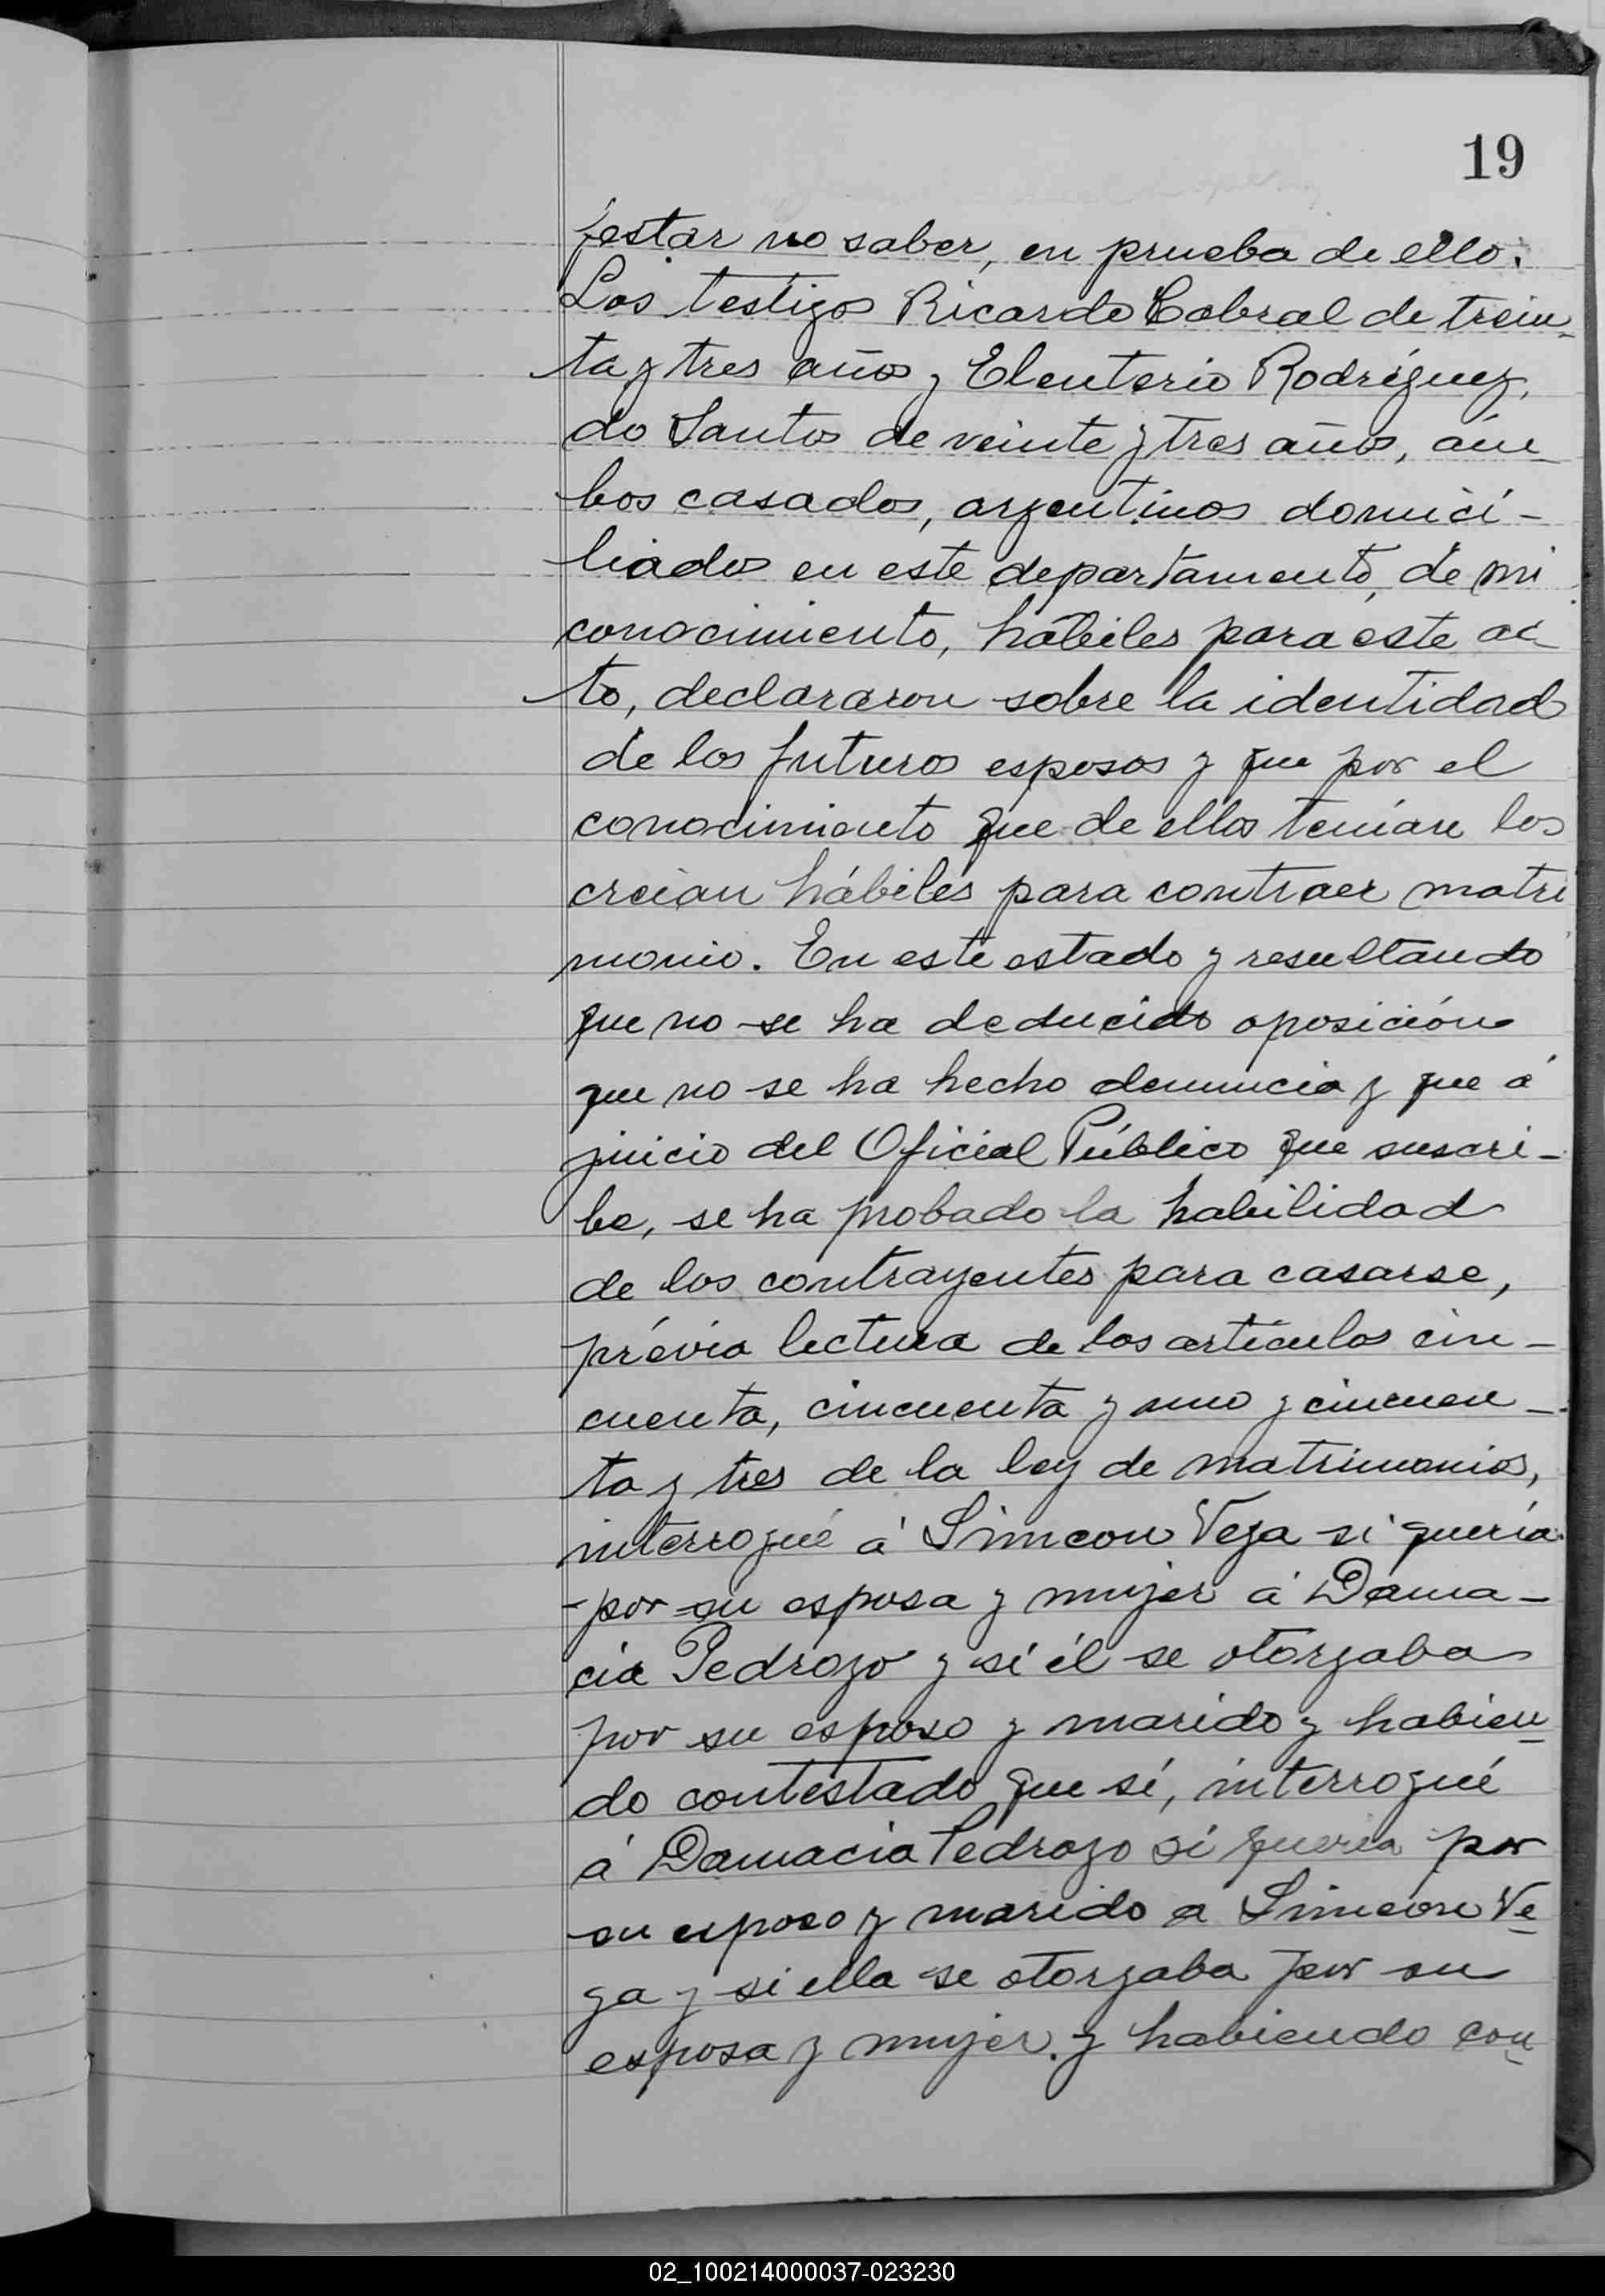 19
festar no saber, en prueba de ello.
Los testigos Ricardo Cabral de trein-
ta y tres años y Eleuterio Rodríguez,
do Santos de veinte y tres años, ám-
bos casados, argentinos domici-
liados en este departamento, de mi
conocimiento, hábiles para este ac-
to, declararon sobre la identidad
de los futuros esposos y que por el
conocimiento que de ellos tenían los
creían hábiles para contraer matri
monio. En este estado y resultando
que no se ha deducido oposición
que no se ha hecho denuncia y que á
juicio del Oficial Público que suscri-
be, se ha probado la habilidad
de los contrayentes para casarse,
prévia lectura de los artículos cin-
cuenta, cincuenta y uno y cincuen-
ta y tres de la ley de matrimonios,
interrogué á Simeon Vega si quería
por su esposa y mujer á Dama-
cia Pedrozo y si él se otorgaba
por su esposo y marido y habien-
do contestado que sí, interrogué
á Damacia Pedrozo si quería por
su esposo y marido a Simeon Ve-
ga y si ella se otorgaba por su
esposa y mujer y habiendo con-
02_100214000037-023230